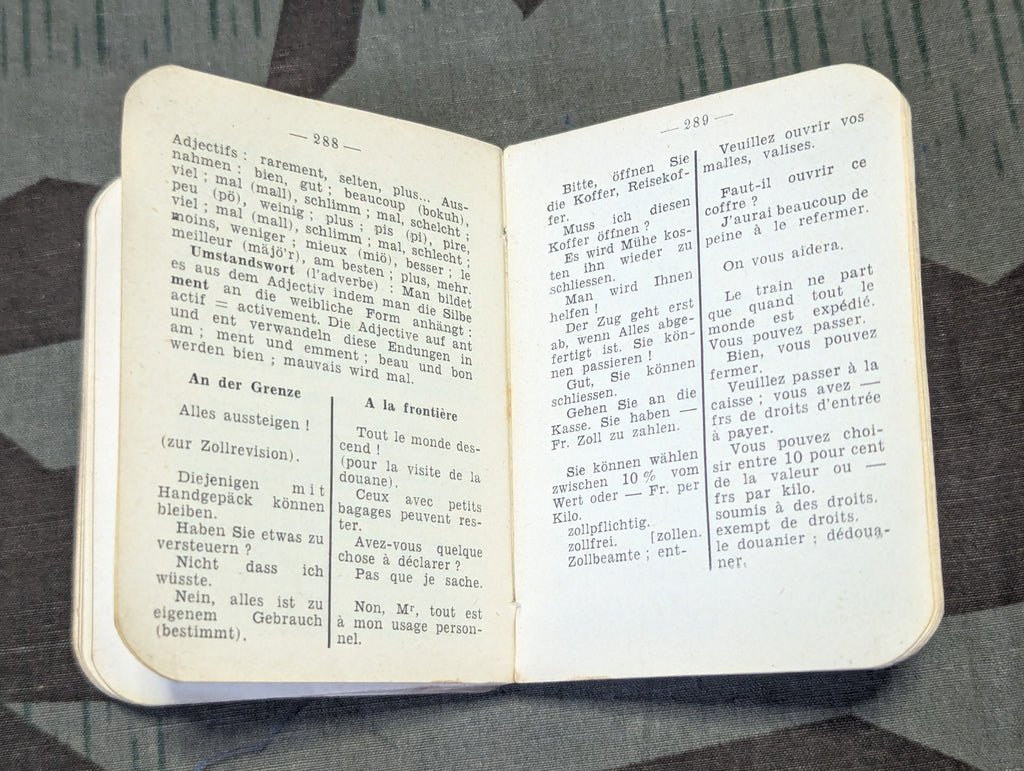 — 288 —
Adjectifs : rarement, selten, plus... Aus-
nahmen : bien, gut ; beaucoup (bokuh),
viel ; mal (mall), schlimm ; mal, schelcht ;
peu (pö), weinig ; plus ; pis (pi), pire,
viel ; mal (mall), schlimm ; mal, schlecht ;
moins, weniger ; mieux (miö), besser ; le
meilleur (mäjö'r), am besten ; plus, mehr.
Umstandswort (l'adverbe) : Man bildet
es aus dem Adjectiv indem man die Silbe
ment an die weibliche Form anhängt :
actif = activement. Die Adjective auf ant
und ent verwandeln diese Endungen in
am ; ment und emment ; beau und bon
werden bien ; mauvais wird mal.
An der Grenze
Alles aussteigen !
(zur Zollrevision).
Diejenigen mit
Handgepäck können
bleiben.
Haben Sie etwas zu
versteuern ?
Nicht dass ich
wüsste.
Nein, alles ist zu
eigenem Gebrauch
(bestimmt).
A la frontière
Tout le monde des-
cend !
(pour la visite de la
douane).
Ceux avec petits
bagages peuvent res-
ter.
Avez-vous quelque
chose à déclarer ?
Pas que je sache.
Non, Mr, tout est
à mon usage person-
nel.
— 289 —
Bitte, öffnen Sie
die Koffer, Reisekof-
fer.
Muss ich diesen
Koffer öffnen ?
Es wird Mühe kos-
ten ihn wieder zu
schliessen.
Man wird Ihnen
helfen !
Der Zug geht erst
ab, wenn Alles abge-
fertigt ist. Sie kön-
nen passieren !
Gut, Sie können
schliessen.
Gehen Sie an die
Kasse. Sie haben —
Fr. Zoll zu zahlen.
Sie können wählen
zwischen 10 % vom
Wert oder — Fr. per
Kilo.
zollpflichtig.
zollfrei. [zollen.
Zollbeamte ; ent-
Veuillez ouvrir vos
malles, valises.
Faut-il ouvrir ce
coffre ?
J'aurai beaucoup de
peine à le refermer.
On vous aidera.
Le train ne part
que quand tout le
monde est expédié.
Vous pouvez passer.
Bien, vous pouvez
fermer.
Veuillez passer à la
caisse ; vous avez —
frs de droits d'entrée
à payer.
Vous pouvez choi-
sir entre 10 pour cent
de la valeur ou —
frs par kilo.
soumis à des droits.
exempt de droits.
le douanier ; dédoua-
ner.